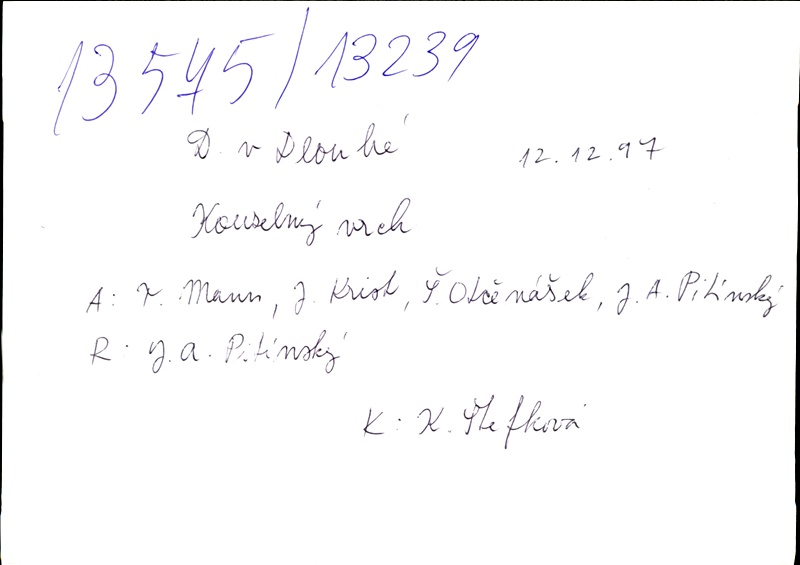 13575/13239
D. v Dlouhé
12.12.97
Kouzelný vrch
A: T. Mann, J. Krist, Š. Otčenášek, J. A. Pitínský
R: J. A. Pitínský
K: K. Štefková